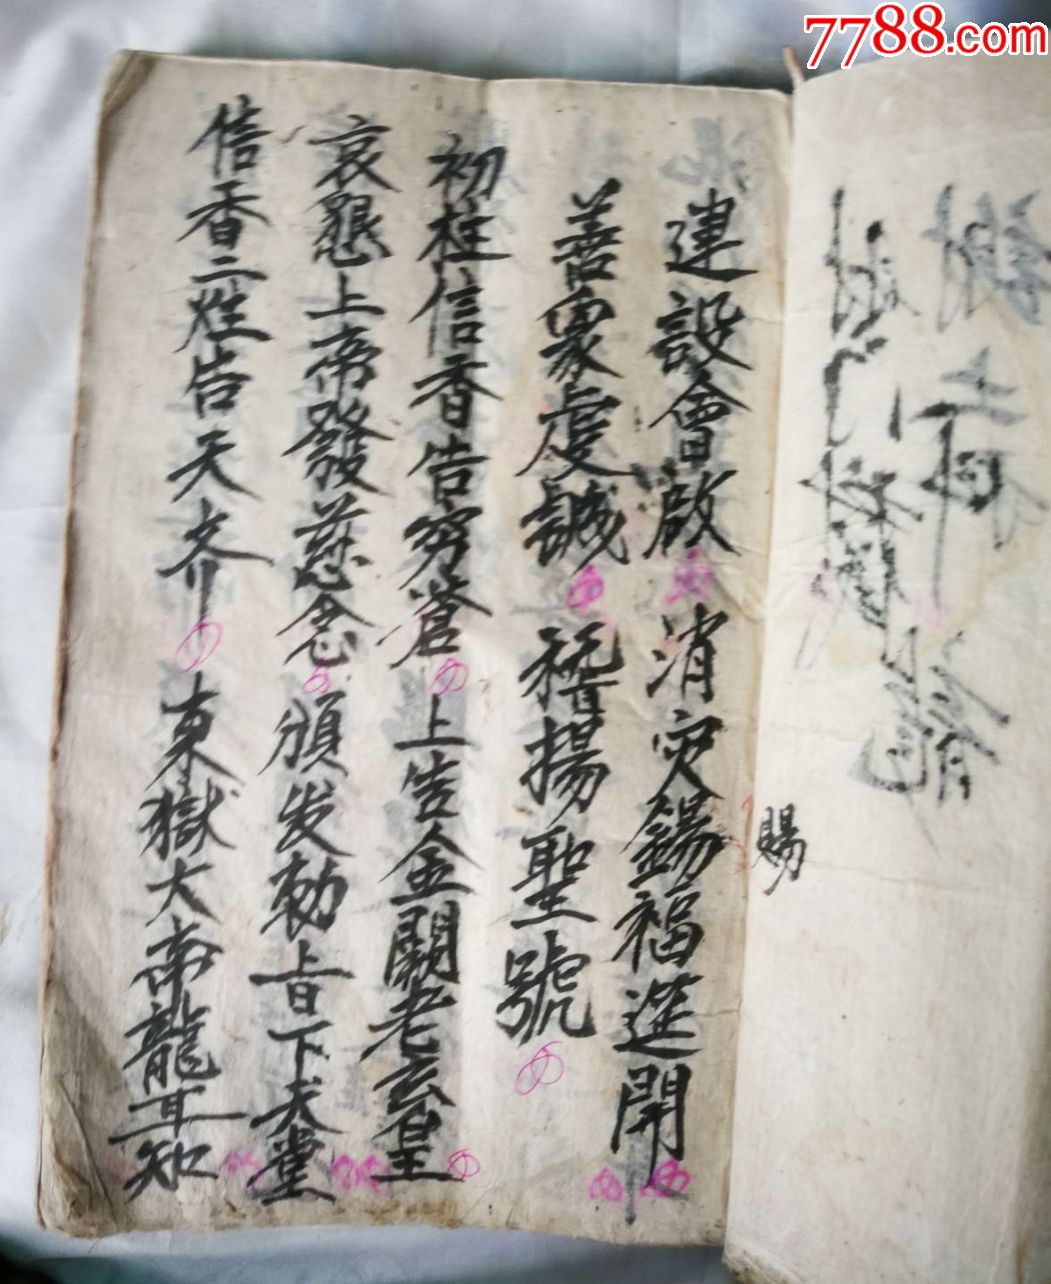 7788.com
賜
建設會啟 消灾錫福筵開
善衆虔誠 稽揚聖號
初柱信香告穷蒼 上告金闕老玄皇
哀懇上帝發慈念 頒发勅旨下天堂
信香二炷告天齐 東獄大帝龍耳知